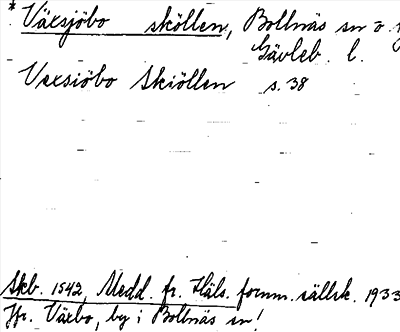 * Växsjöbo sköllen, Bollnäs sn o.
Gävleb. l.
Vexsiöbo Skiöllen s. 38
Skb. 1542, Medd. fr. Häls. fornm. sällsk. 1933
Jfr. Växbo, by i Bollnäs sn!